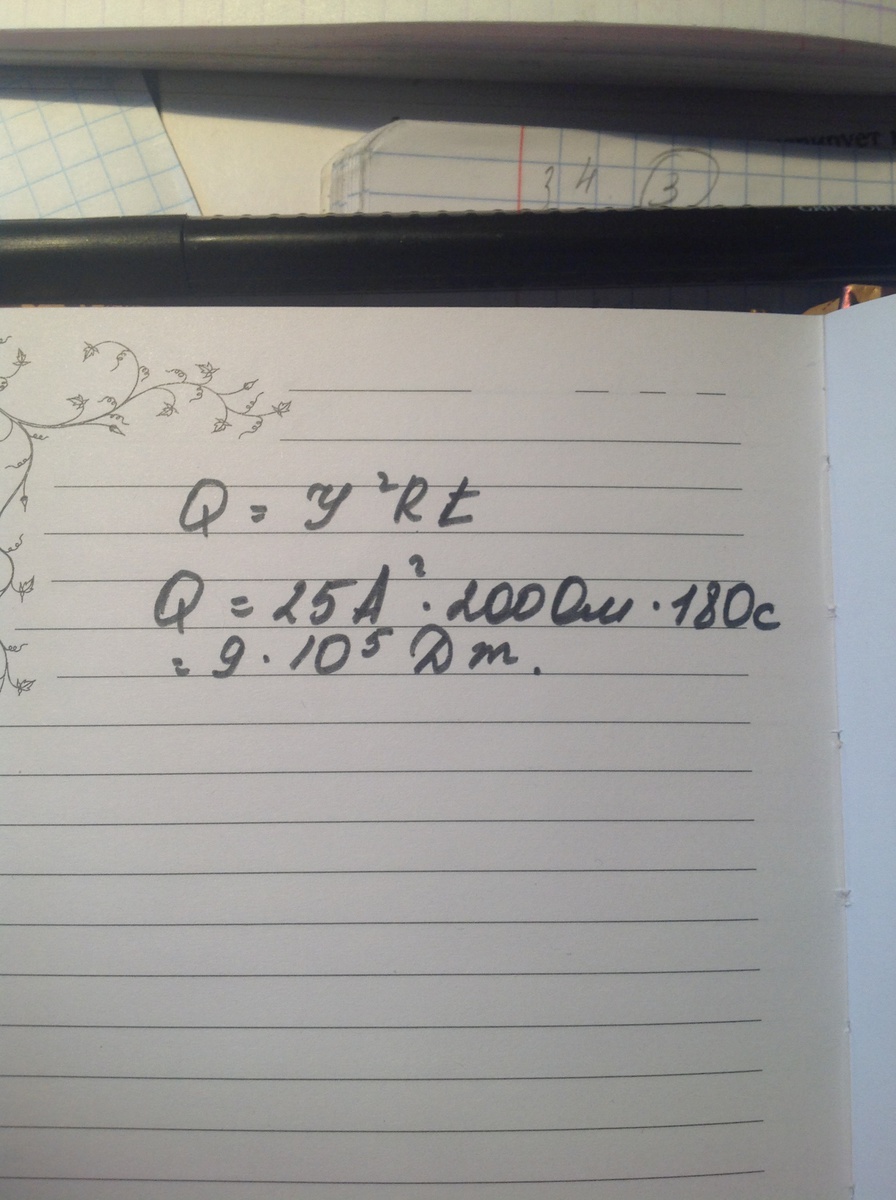 3 4 3
Q = У²Rt
Q = 25А² · 200 Ом · 180с
= 9 · 10⁵ Дж.